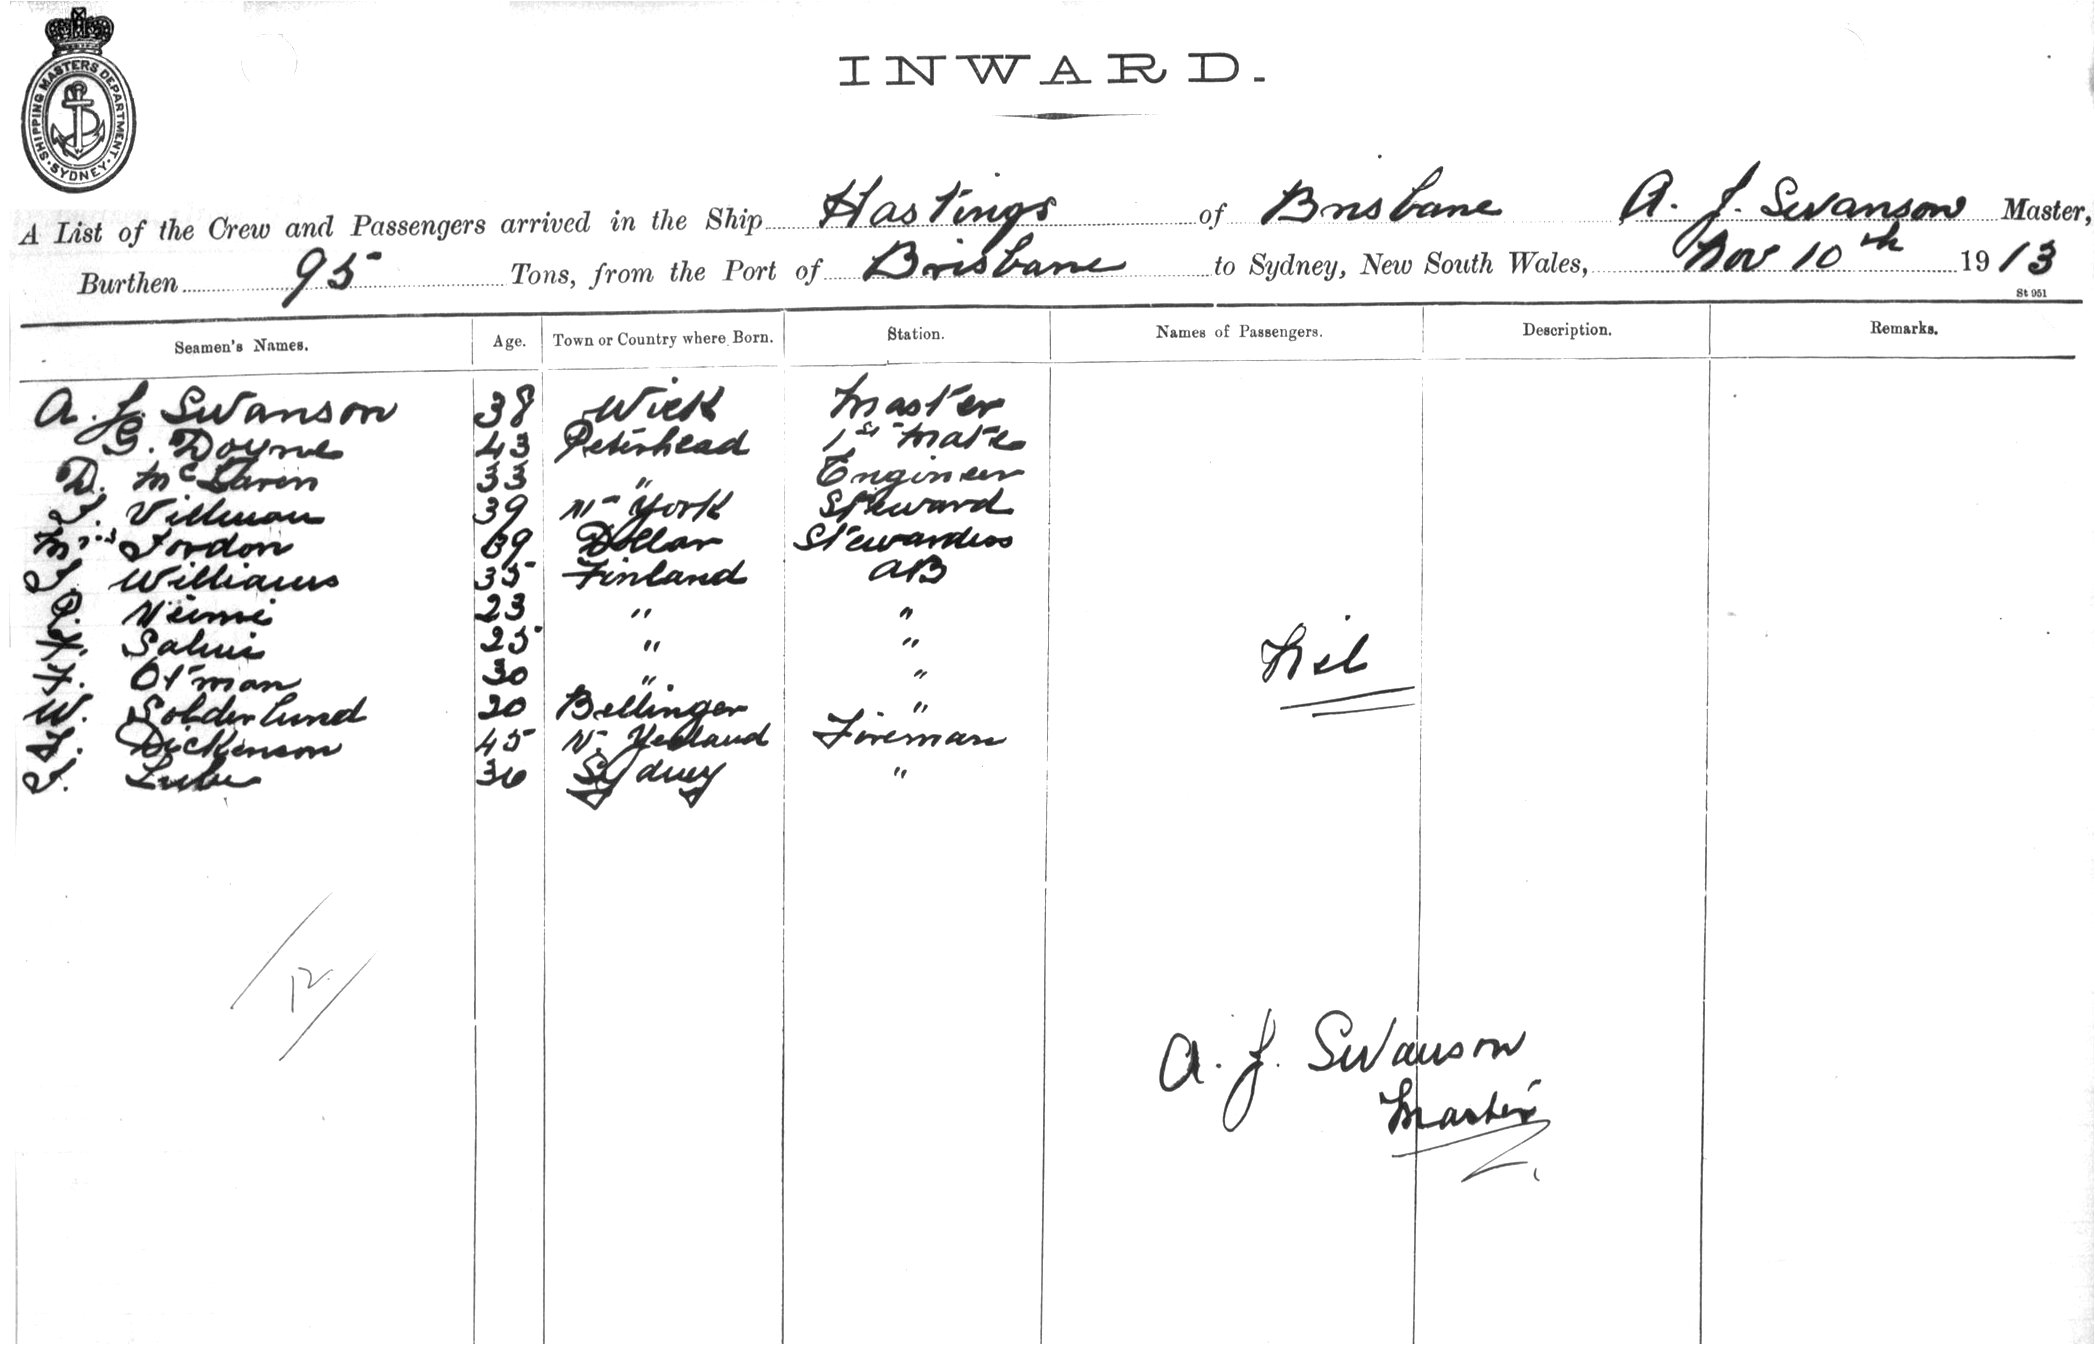 SHIPPING MASTERS DEPARTMENT
SYDNEY
INWARD.
A List of the Crew and Passengers arrived in the Ship Hastings of Brisbane A. J. Swanson Master,
Burthen 95 Tons, from the Port of Brisbane to Sydney, New South Wales, Nov 10th 1913
St 951
Seamen's Names. Age. Town or Country where Born. Station. Names of Passengers. Description. Remarks.
A. J. Swanson 38 Wick Master
G. Doyne 43 Peterhead 1st Mate
D. McLaren 33 " Engineer
39 N- York Steward
Mrs 39 Dollar Stewardess
Williams 35 Finland AB
P. Niemi 23 " "
F. Salmi 25 " "
F. Otman 30 " "
Nil
W. Solderlund 20 Bellinger "
Dickenson 45 N. Zealand Fireman
36 Sydney "
12.
A. J. Swanson
Master